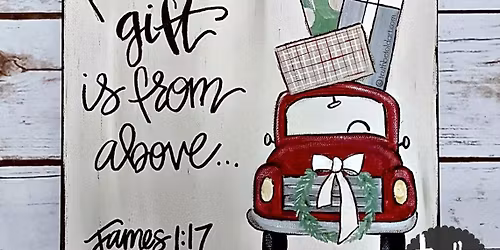 gift
is from
above...
James 1:17